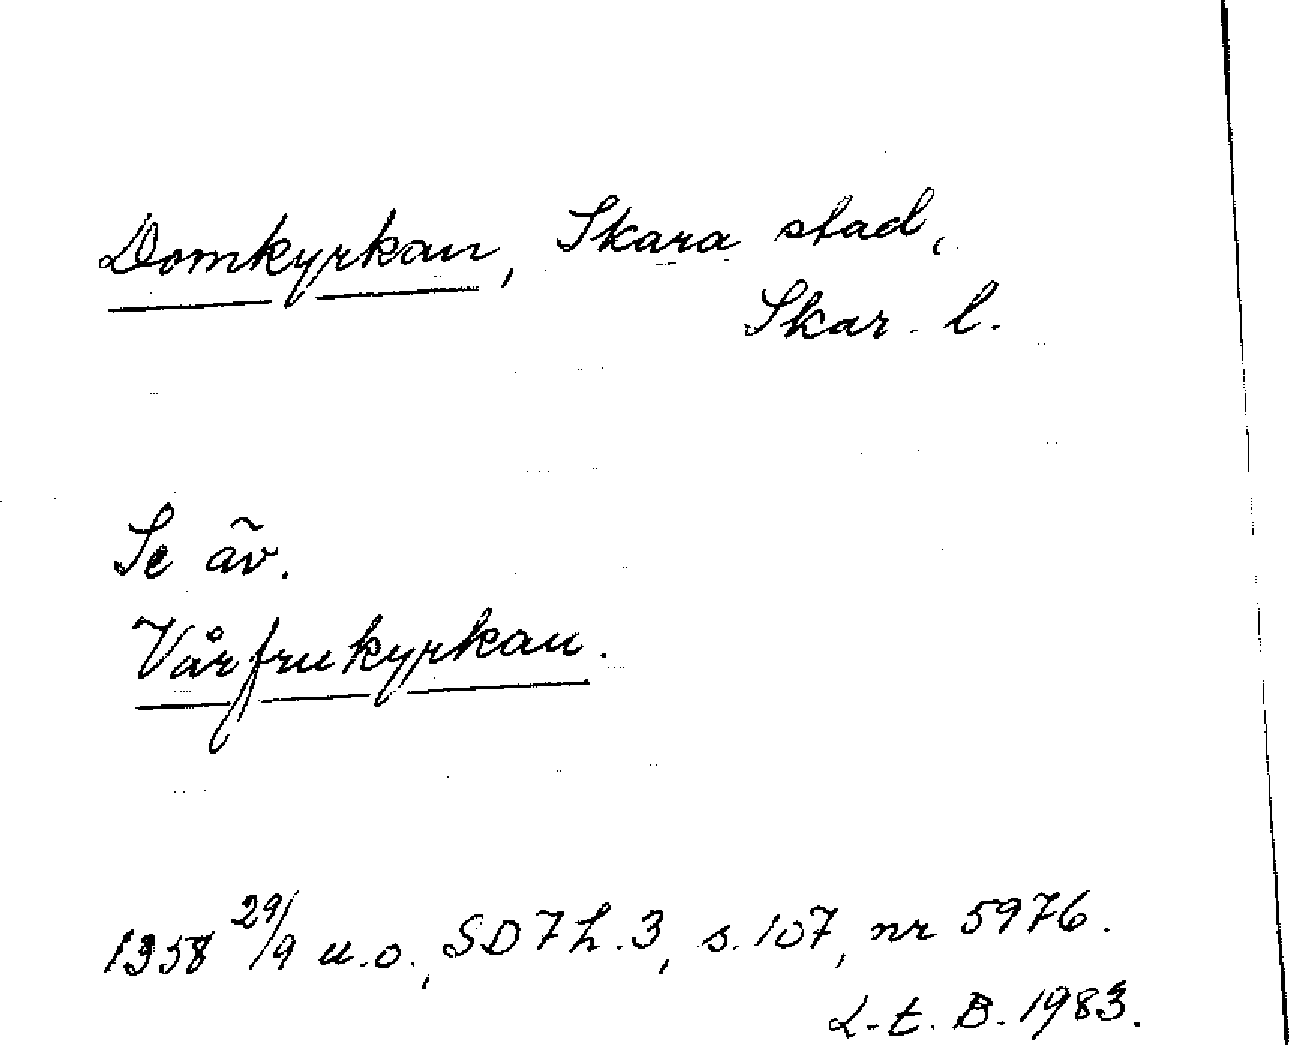 Domkyrkan, Skara stad,
Skar. l.
Se äv.
Vårfrukyrkan.
1358 29/9 u.o., SD 7 h. 3, s. 107, nr 5976.
L-t. B. 1983.